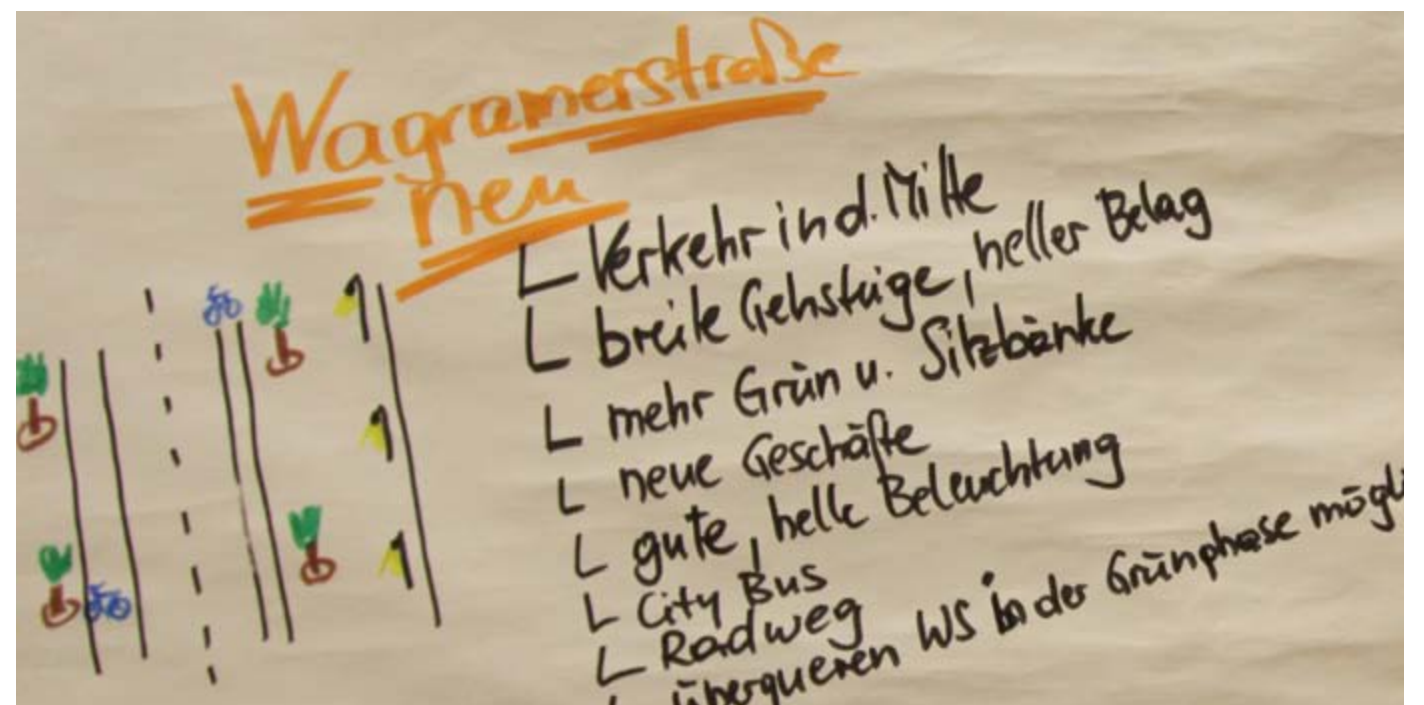 Wagramerstraße
neu
Verkehr in d. Mitte
breite Gehsteige, heller Belag
mehr Grün u. Sitzbänke
neue Geschäfte
gute, helle Beleuchtung
City Bus
Radweg
überqueren WS in der Grünphase mögli